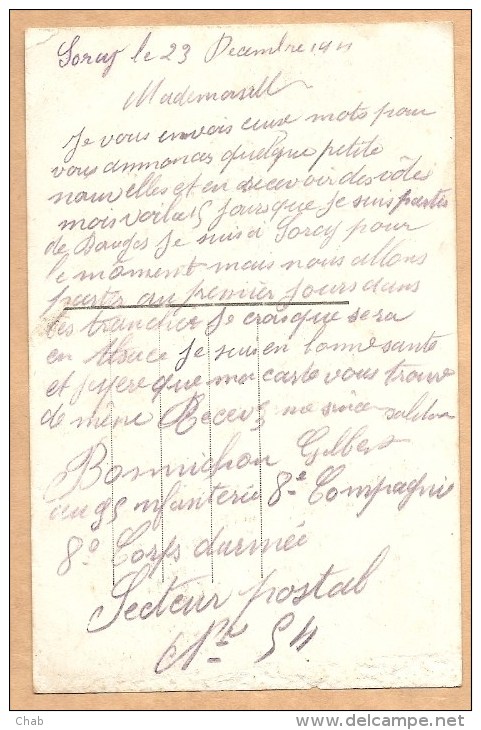 Soray le 23 Decembre 1911
Mademoisell
Je vous envois ceuse mots pour
vous annonces quelque petite
nouvelles et en recevoir des vôtes
mois voila 5 jours que je suis partis
de Bourges Je suis a Soray pour
le môment mais nous allons
partir au premier jours dans
les tranchie je crois que sera
en Alsace je suis en bonne sante
et jespere que ma carte vous trouve
de mene Recevez me sincer
Bonnichon Gilbert
au 95 nfanterie 8e Compagnie
8e Corps darmée
Secteur postal
No 54
Chab
www.delcampe.net